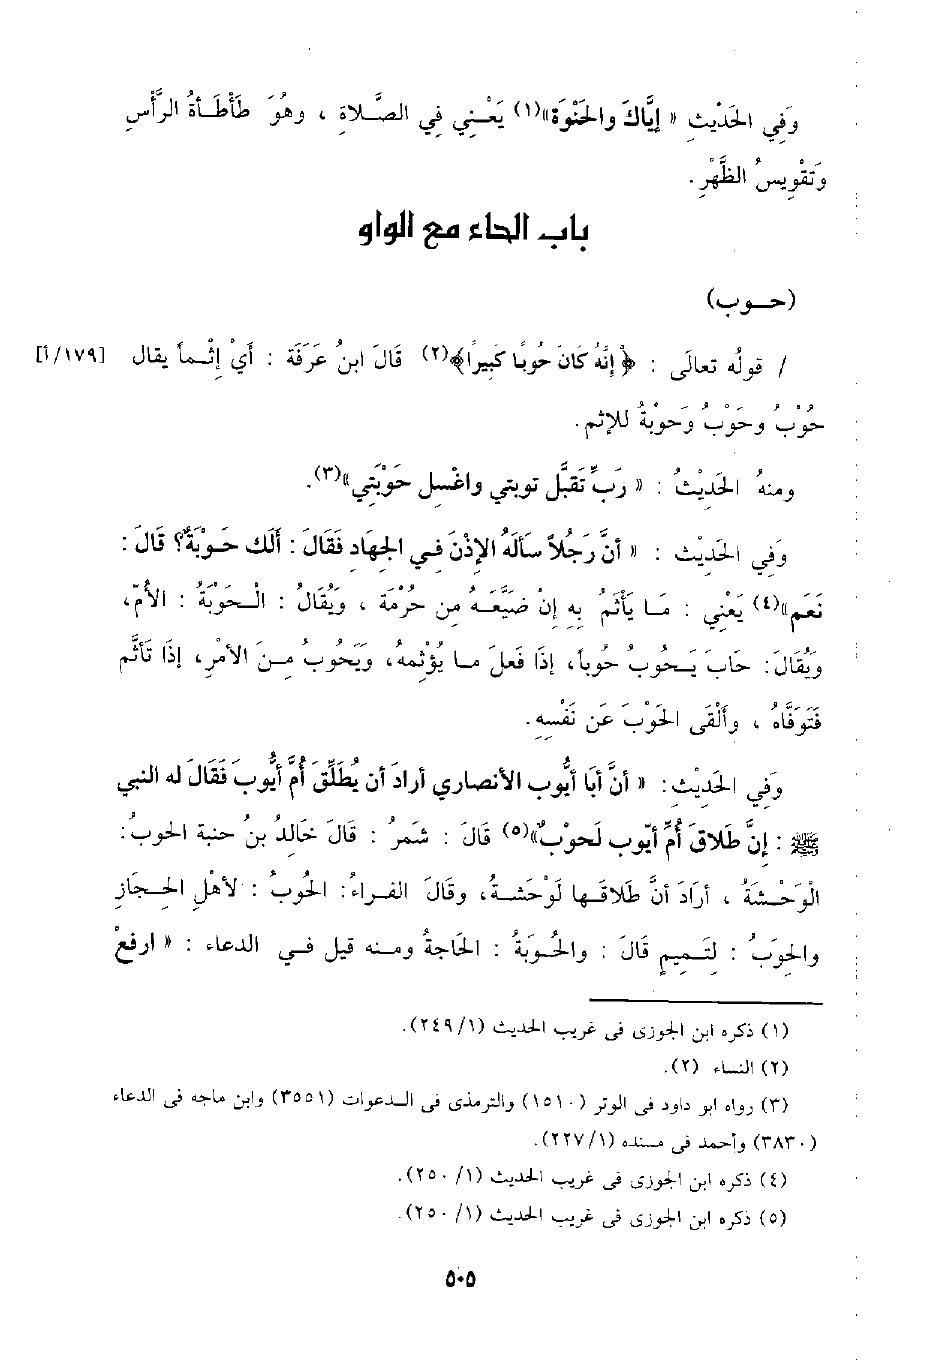 وَفِي الحَدْيثِ « إيَّاكَ والحَنْوَةَ»(١) يَعْنِي فِي الصَّلاةِ ، وهُوَ طَأْطَأةُ الرَّأْسِ
وَتقْوِيسُ الظَّهْرِ .
باب الحاء مع الواو
(حوب)
/ قولُه تعالَى : ﴿ إنَّهُ كَانَ حُوبًا كَبيرًا﴾(٢) قَالَ ابنُ عَرَفَة : أَيْ إثْماً يقال [١٧٩/أ]
حُوْبُ وحَوْبُ وَحَوْبةُ للإثم .
ومنهُ الحَدِيْثُ : « رَبِّ تَقَبَّل توبتي واغْسِل حَوْبَتِي»(٣).
وَفِي الحَدِيْث : « أنَّ رَجُلاً سَألَهُ الإذْنَ فِي الجِهَادِ فَقَالَ : أَلَكَ حَوْبَةٌ؟ قَالَ :
نَعَم»(٤) يَعْنِي : مَا يَأْثَمُ بِهِ إنْ ضَيَّعَهُ مِن حُرْمَة ، وَيُقَالُ : الْحَوْبَةُ : الأُمّ،
وَيُقَالَ: حَابَ يَحُوبُ حُوباً، إذَا فَعلَ ما يُؤْثمهُ، ويَحُوبُ مِنَ الأمْرِ، إذَا تَأثَّم
فَتَوَقَّاهُ ، وألْقَى الحَوْبَ عَن نَفْسِهِ.
وَفِي الحَدِيْثِ: « أنَّ أبَا أيُّوب الأنصاري أرادَ أن يُطَلِّقَ أُمَّ أيُّوبَ فَقَالَ له النبي
ﷺ : إنَّ طَلاقَ أُمِّ أيّوب لَحوْبٌ»(٥) قَالَ : شَمرُ : قَالَ خَالدُ بنُ حنبة الحوبُ:
الْوَحْشَةُ ، أرَادَ أنَّ طَلاقَها لَوْحَشةُ، وقَالَ الفراءُ: الحُوبُ : لأهْلِ الحِجَازِ
والحِوَبُ : لِتَمِيمٍ قَالَ : والحُوبَةُ : الحَاجةُ ومنه قيل في الدعاء : « ارفعْ
(١) ذكره ابن الجوزى فى غريب الحديث (١/ ٢٤٩).
(٢) النساء (٢).
(٣) رواه ابو داود فى الوتر (١٥١٠) والترمذى فى الدعوات (٣٥٥١) وابن ماجه فى الدعاء
(٣٨٣٠) وأحمد فى مسنده (١/ ٢٢٧).
(٤) ذكره ابن الجوزى فى غريب الحديث (١/ ٢٥٠).
(٥) ذكره ابن الجوزى فى غريب الحديث (١/ ٢٥٠).
٥٠٥